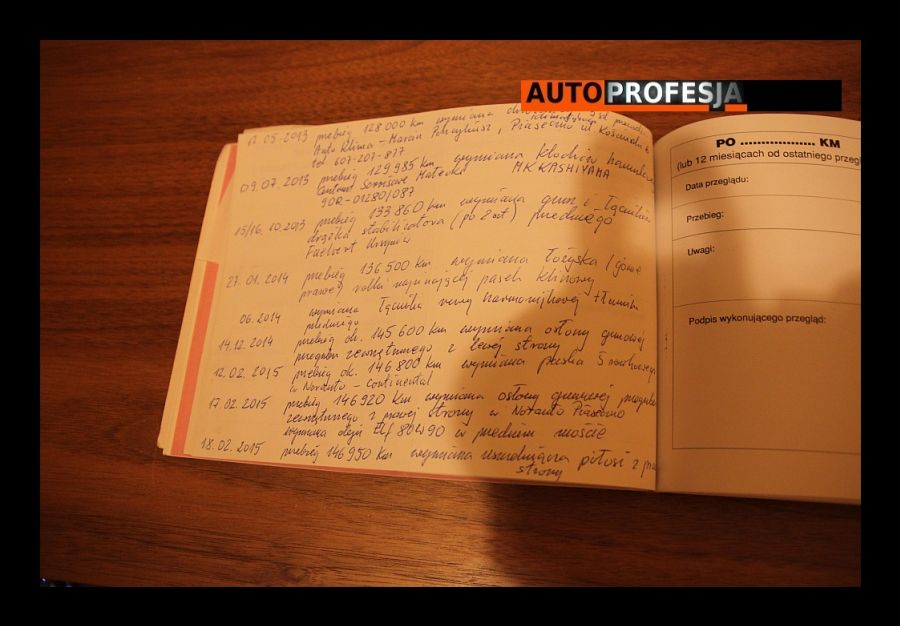 AUTOPROFESJA
17.05.2013 przebieg 128 000 km wymiana
Auto Klima - Marcin Piaseczno ul. Kościuszki
tel. 607-207-877
09.07.2013 przebieg 129 985 km wymiana klocków hamulcowych
Centrum Serwisowe Matecki MK KASHIYAMA
90R-01280/087
15/16.10.2013 przebieg 133 860 km wymiana gum i łączników
drążka stabilizatora (po 2 szt) przedniego
27.01.2014 przebieg 136 500 km wymiana łożyska
prawej rolki napinającej pasek klinowy
06.2014 wymiana łącznika rury harmonijkowej tłumika
przedniego
14.12.2014 przebieg ok. 145 600 km wymiana osłony gumowej
przegubu zewnętrznego z lewej strony
12.02.2015 przebieg ok. 146 800 km wymiana paska
w Norauto - Continental
17.02.2015 przebieg 146 920 km wymiana osłony gumowej przegubu
zewnętrznego z prawej strony w Norauto Piaseczno
wymiana oleju Elf 80W90 w przednim moście
18.02.2015 przebieg 146 950 km wymiana piłosi z
strony
PO .................. KM
(lub 12 miesiącach od ostatniego przegl
Data przeglądu:
Przebieg:
Uwagi:
Podpis wykonującego przegląd: